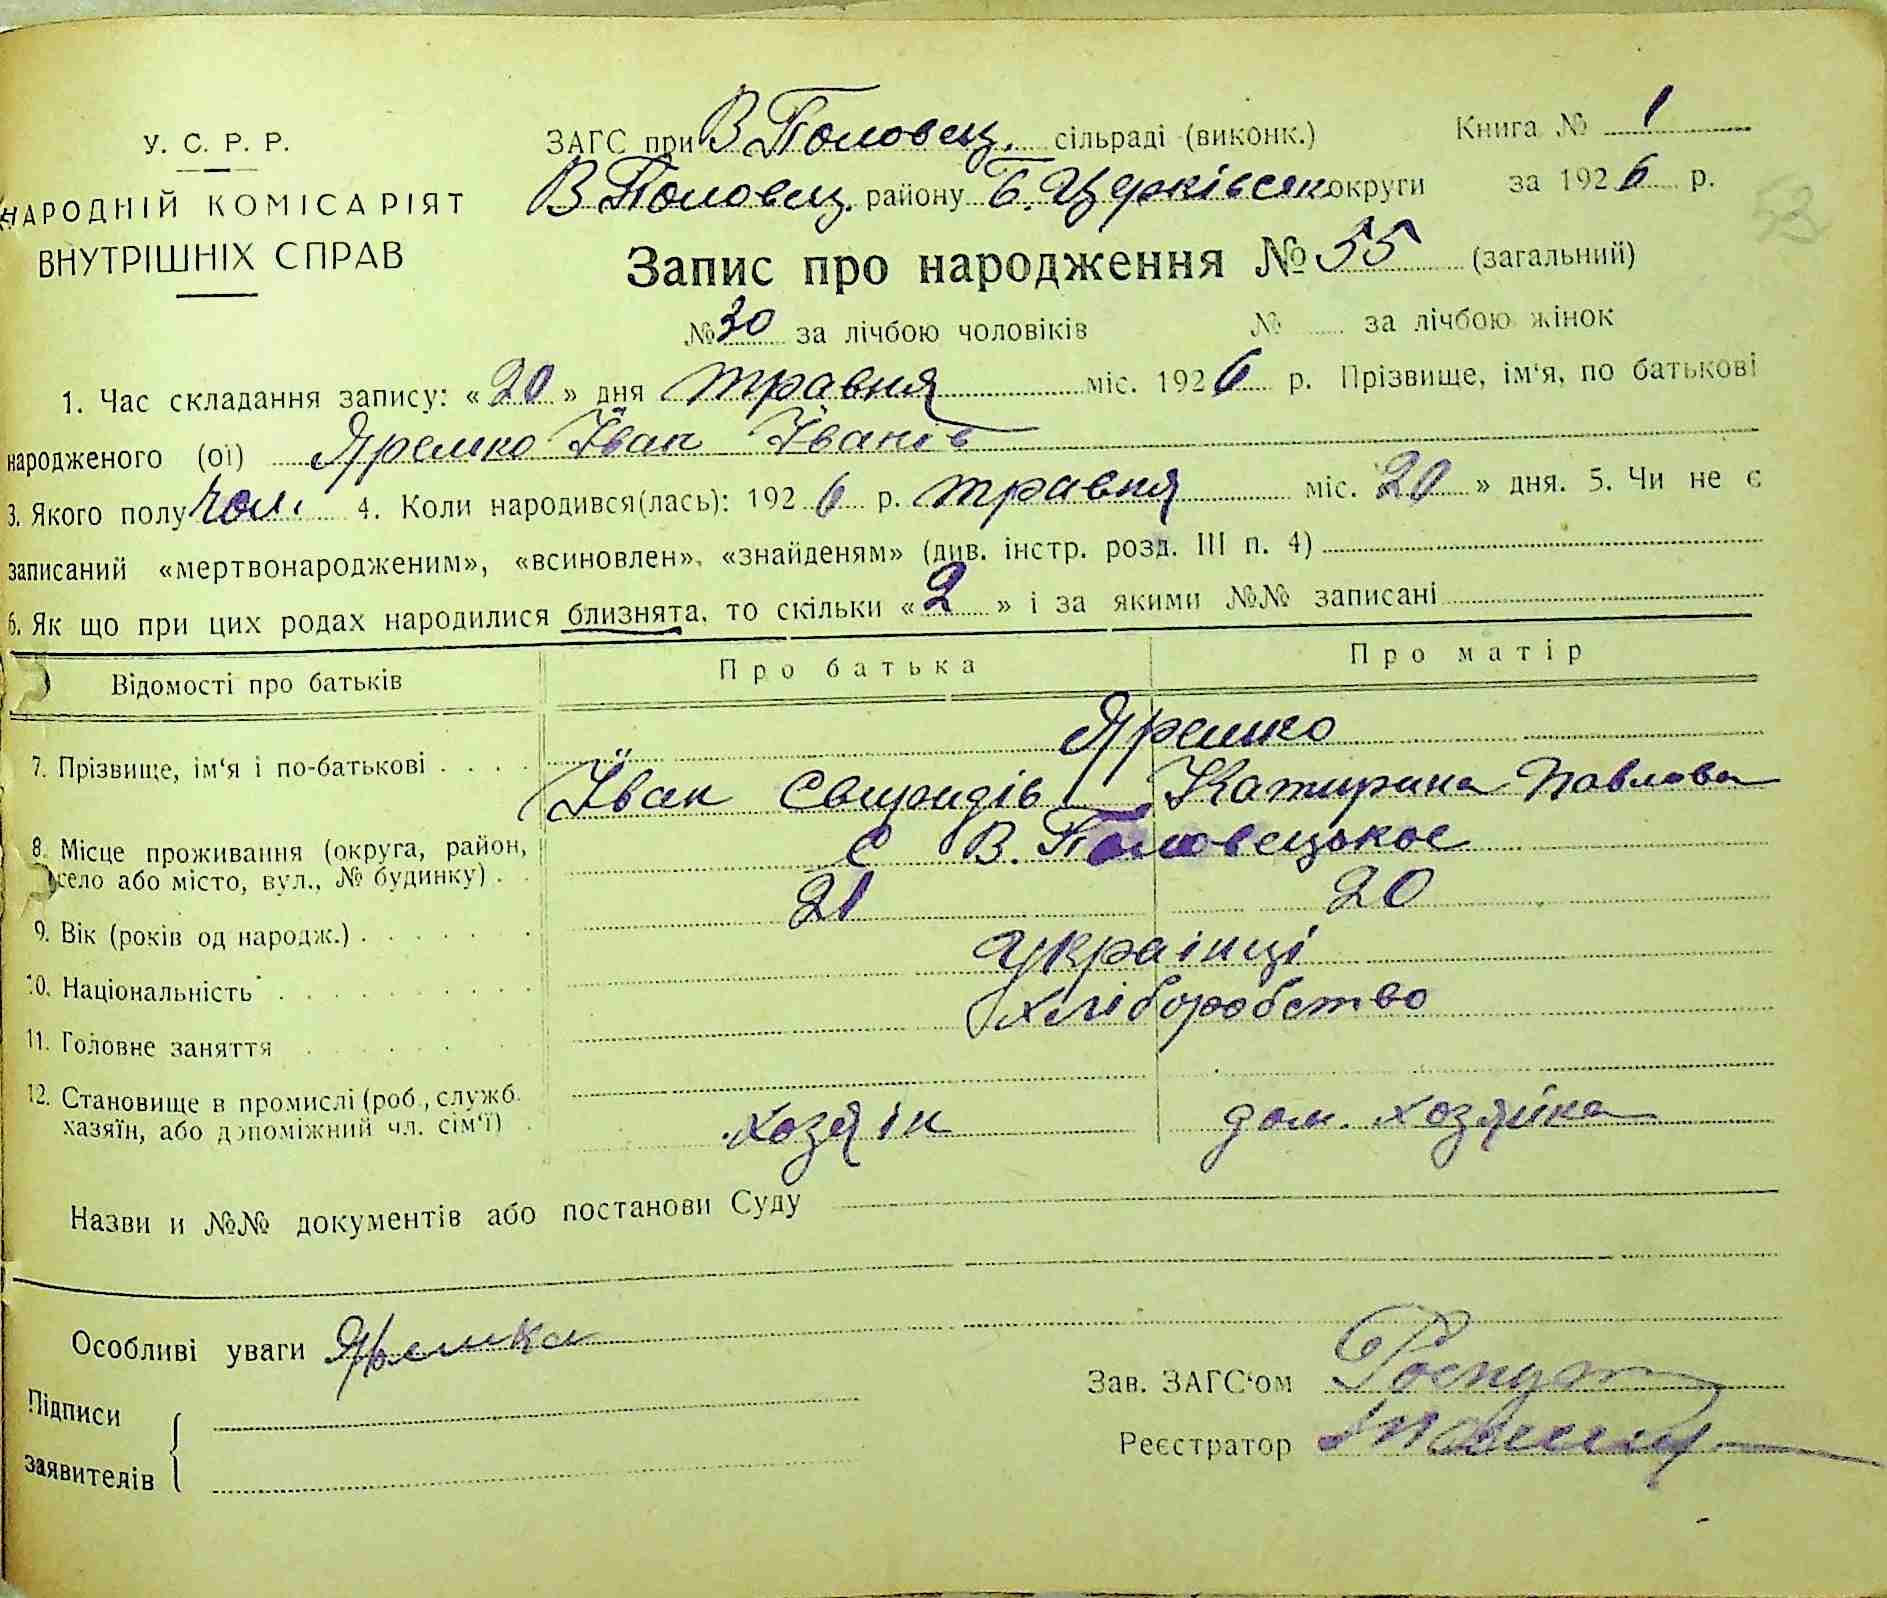 У. С. Р. Р.
НАРОДНІЙ КОМІСАРІЯТ
ВНУТРІШНІХ СПРАВ
ЗАГС при В Половец. сільраді (виконк.) Книга № 1
В Половец. району Б. Церківськ округи за 1926 р.
53
Запис про народження № 55 (загальний)
№ 30 за лічбою чоловіків № за лічбою жінок
1. Час складання запису: «20» дня травня міс. 1926 р. Прізвище, ім‘я, по батькові
народженого (ої) Яремко Іван Іванів
3. Якого полу чол. 4. Коли народився(лась): 1926 р. травня міс. 20 » дня. 5. Чи не є
записаний «мертвонародженим», «всиновлен», «знайденям» (див. інстр. розд. III п. 4)
6. Як що при цих родах народилися близнята, то скільки «2» і за якими №№ записані
Відомості про батьків Про батька Про матір
Яремко
7. Прізвище, ім‘я і по-батькові Іван Свиридів Катирина Павлова
8. Місце проживання (округа, район, с В. Половецькое
село або місто, вул., № будинку)
9. Вік (років од народж.) 21 20
10. Національність українці
11. Головне заняття хліборобство
12. Становище в промислі (роб., служб.
хазяїн, або допоміжний чл. сім‘ї) хозяін дом. хозяйка
Назви и №№ документів або постанови Суду
Особливі уваги Яремка
Зав. ЗАГС‘ом
Підписи
заявителів
Реєстратор